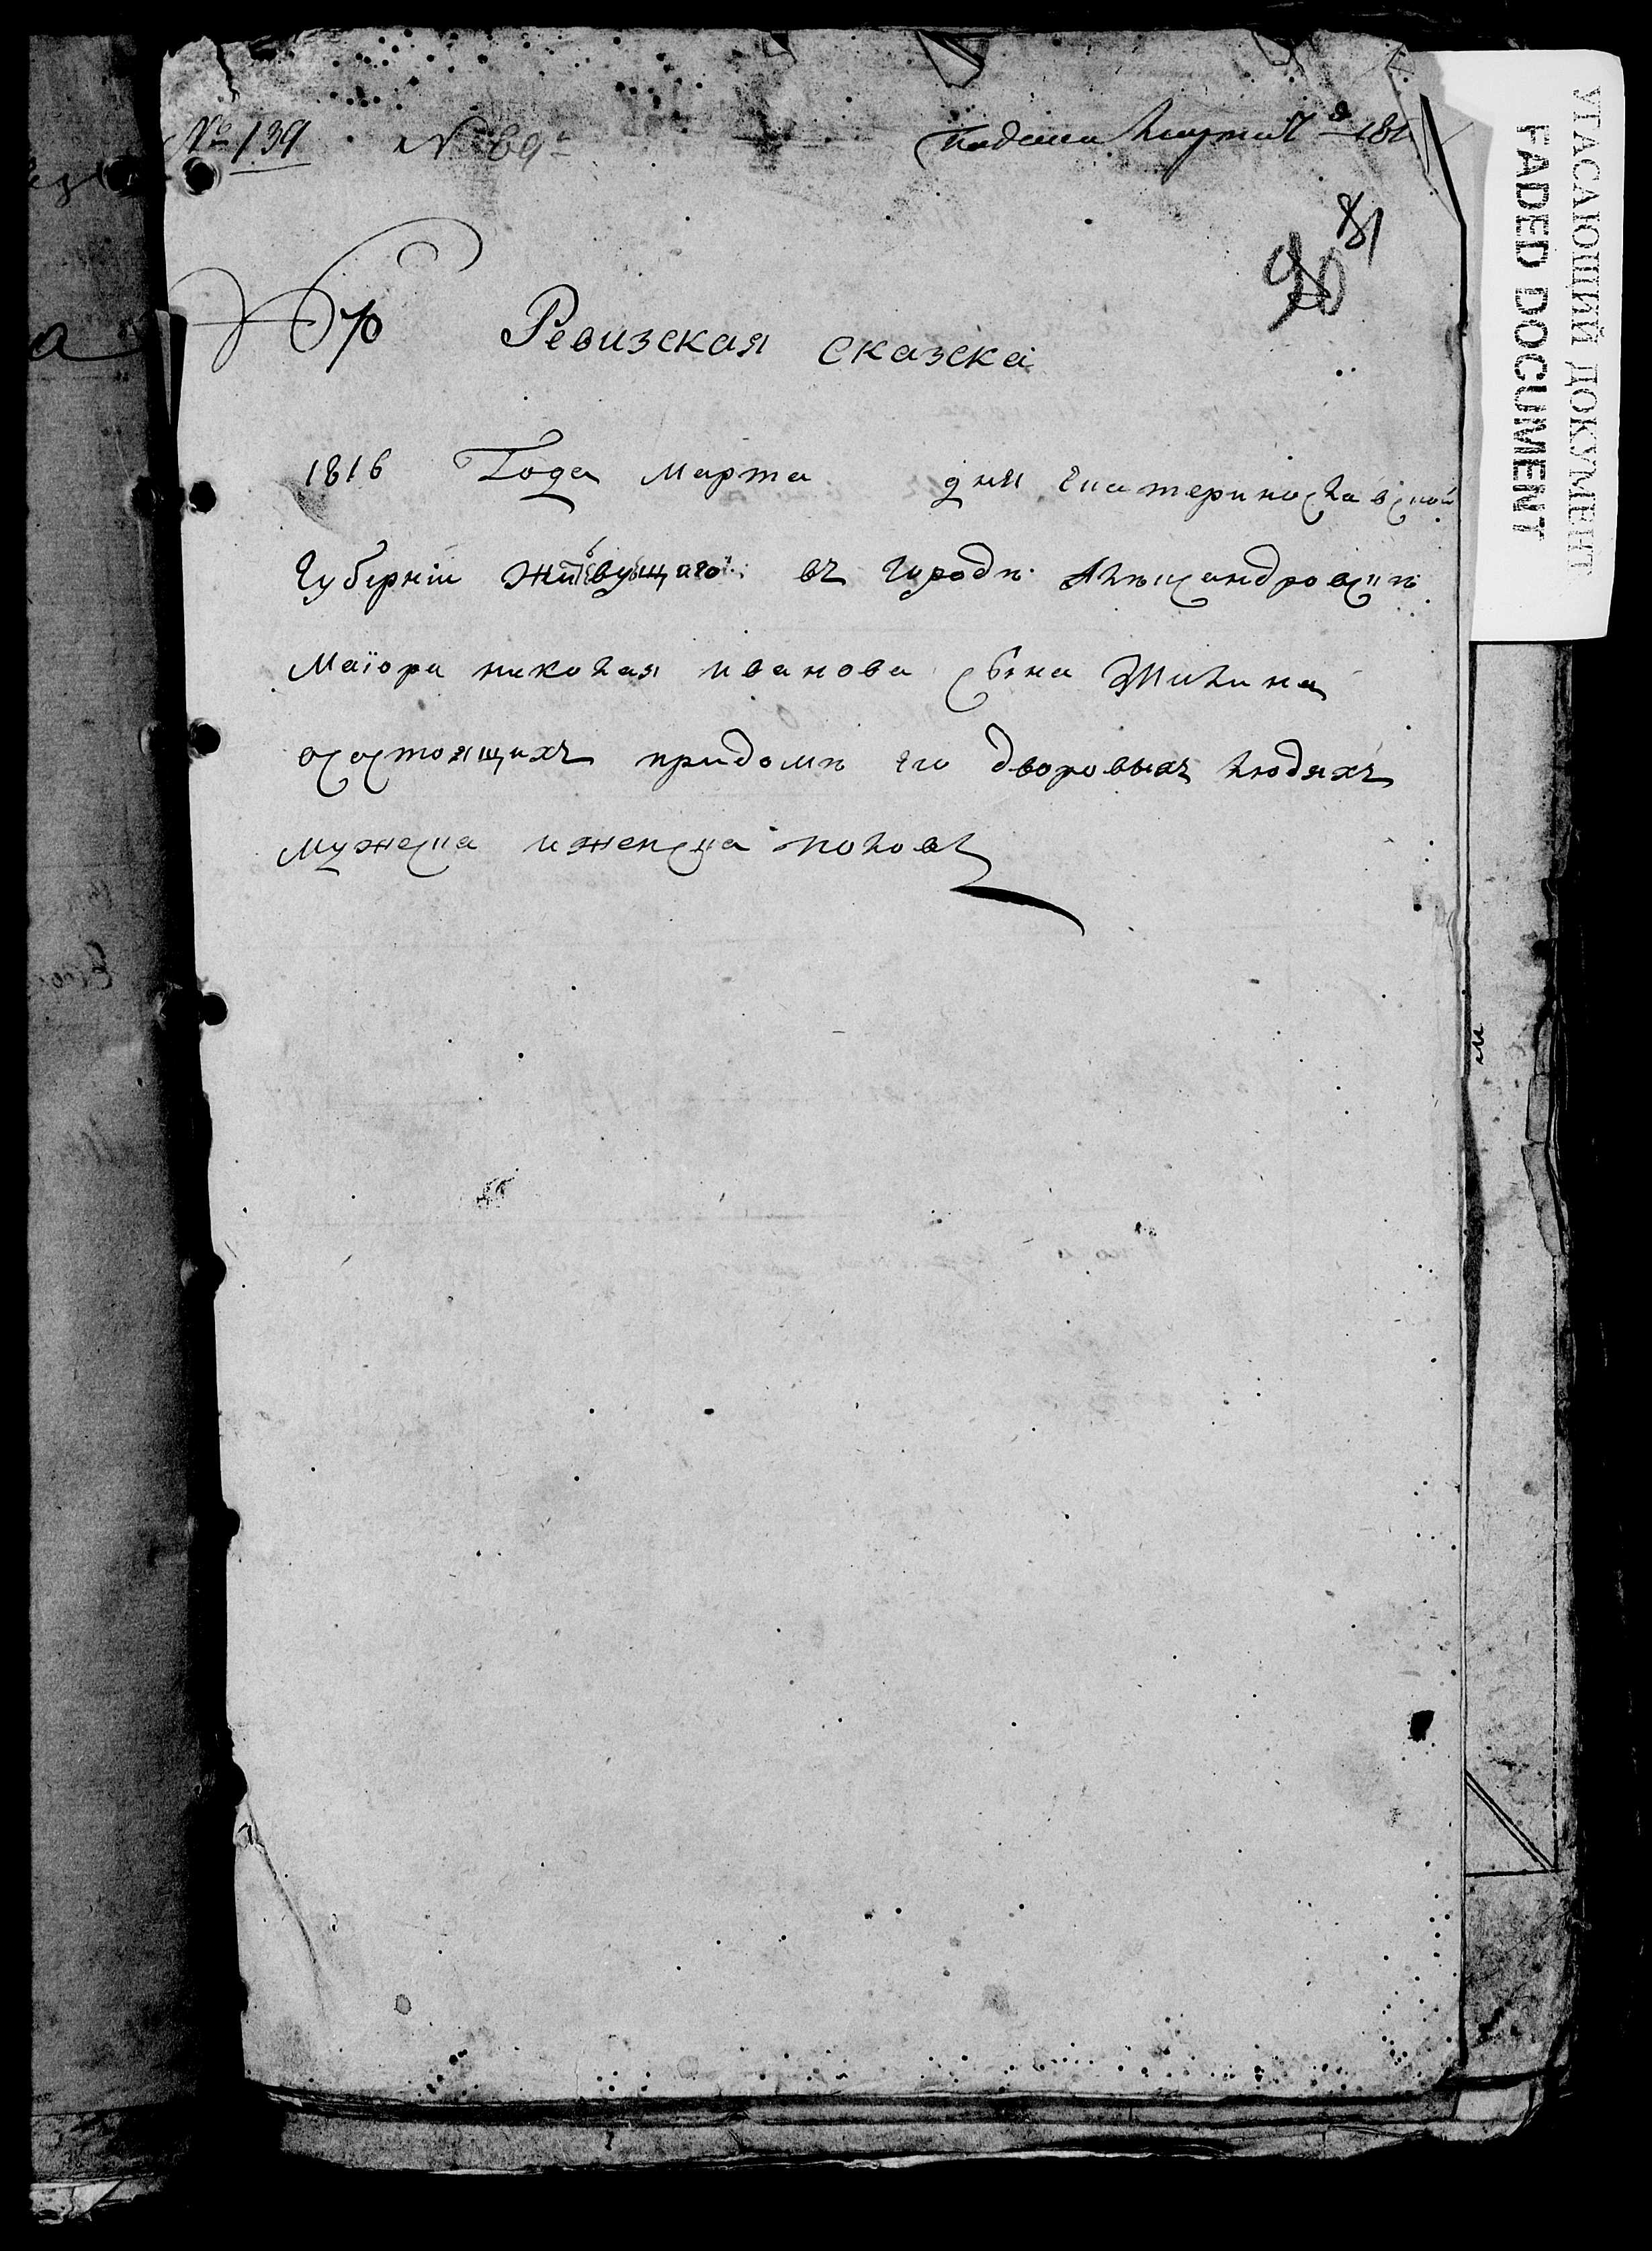 № 139 № 89
Подана марта 7 181
81
90
Ревизская сказска
1816 Года марта дня Екатеринославской
Губернiи живущаго въ городѣ Алѣксандровскѣ
Маiора николая иванова сына Жилина
осостоящихъ придомѣ его дворовыхъ людяхъ
мужеска иженска половъ
УГАСАЮЩИЙ ДОКУМЕНТ
FADED DOCUMENT